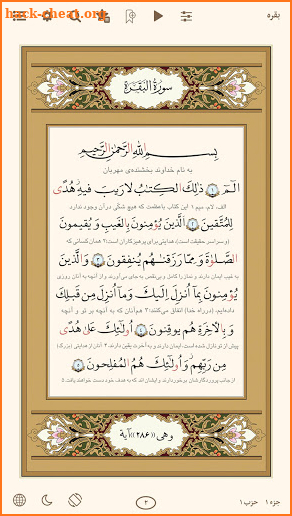 hack-cheat.org
بقره
سورة البقرة
بِسْمِ اللَّهِ الرَّحْمَٰنِ الرَّحِيمِ
به نام خداوند بخشنده‌ی مهربان
الٓمٓ ۝١ ذَٰلِكَ الْكِتَٰبُ لَا رَيْبَ فِيهِ هُدًى
الف، لام، میم ۱ این کتاب باعظمت که هیچ شکّی در آن وجود ندارد
لِلْمُتَّقِينَ ۝٢ الَّذِينَ يُؤْمِنُونَ بِالْغَيْبِ وَيُقِيمُونَ
(و سراسر حقیقت است)؛ هدایتی برای پرهیزگاران است؛۲ همان کسانی که
الصَّلَوٰةَ وَمِمَّا رَزَقْنَٰهُمْ يُنفِقُونَ ۝٣ وَالَّذِينَ
به غیب ایمان دارند و نماز را کامل و بی‌نقص به جای می‌آورند و از آنچه به آنان روزی
يُؤْمِنُونَ بِمَآ أُنزِلَ إِلَيْكَ وَمَآ أُنزِلَ مِن قَبْلِكَ
داده‌ایم، (در راه خدا) انفاق می‌کنند؛۳ هم آنان که به آنچه بر تو و آنچه
وَبِالْءَاخِرَةِ هُمْ يُوقِنُونَ ۝٤ أُو۟لَٰٓئِكَ عَلَىٰ هُدًى
پیش از تو نازل شده است، ایمان دارند و به آخرت یقین دارند. ۴ آنان از هدایتی (بزرگ)
مِّن رَّبِّهِمْ وَأُو۟لَٰٓئِكَ هُمُ الْمُفْلِحُونَ ۝٥
از جانب پروردگارشان برخوردارند و ایشان‌اند که به هدف خود دست خواهند یافت. ۵
وهی «۲۸۶» آیة
جزء ۱ حزب ۱
۲
hack-cheat.org